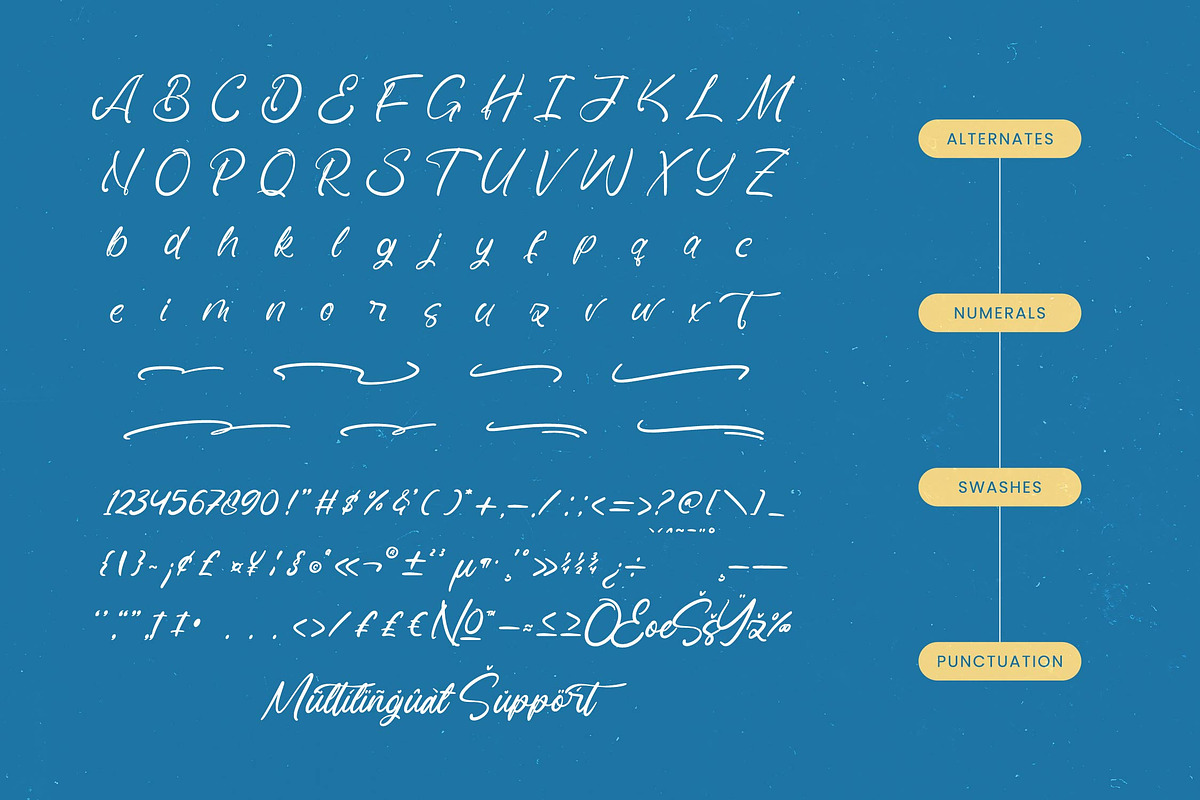 A B C D E F G H I J K L M
N O P Q R S T U V W X Y Z
b d h k l g j y f p q a c
e i m n o r s u z v w x T
1234567890!"#$%&'()*+,-./:;<=>?@[\]_
{|}~¡¢£¤¥¦§©ª«¬®±²³µ¶·¸¹º»¼½¾¿÷
‘’‚“”„†‡•...‹›⁄₣₤€№™−≈≤≥ŒœŠšŸž‰
Mültilïñġûàt Šüppört
ALTERNATES
NUMERALS
SWASHES
PUNCTUATION